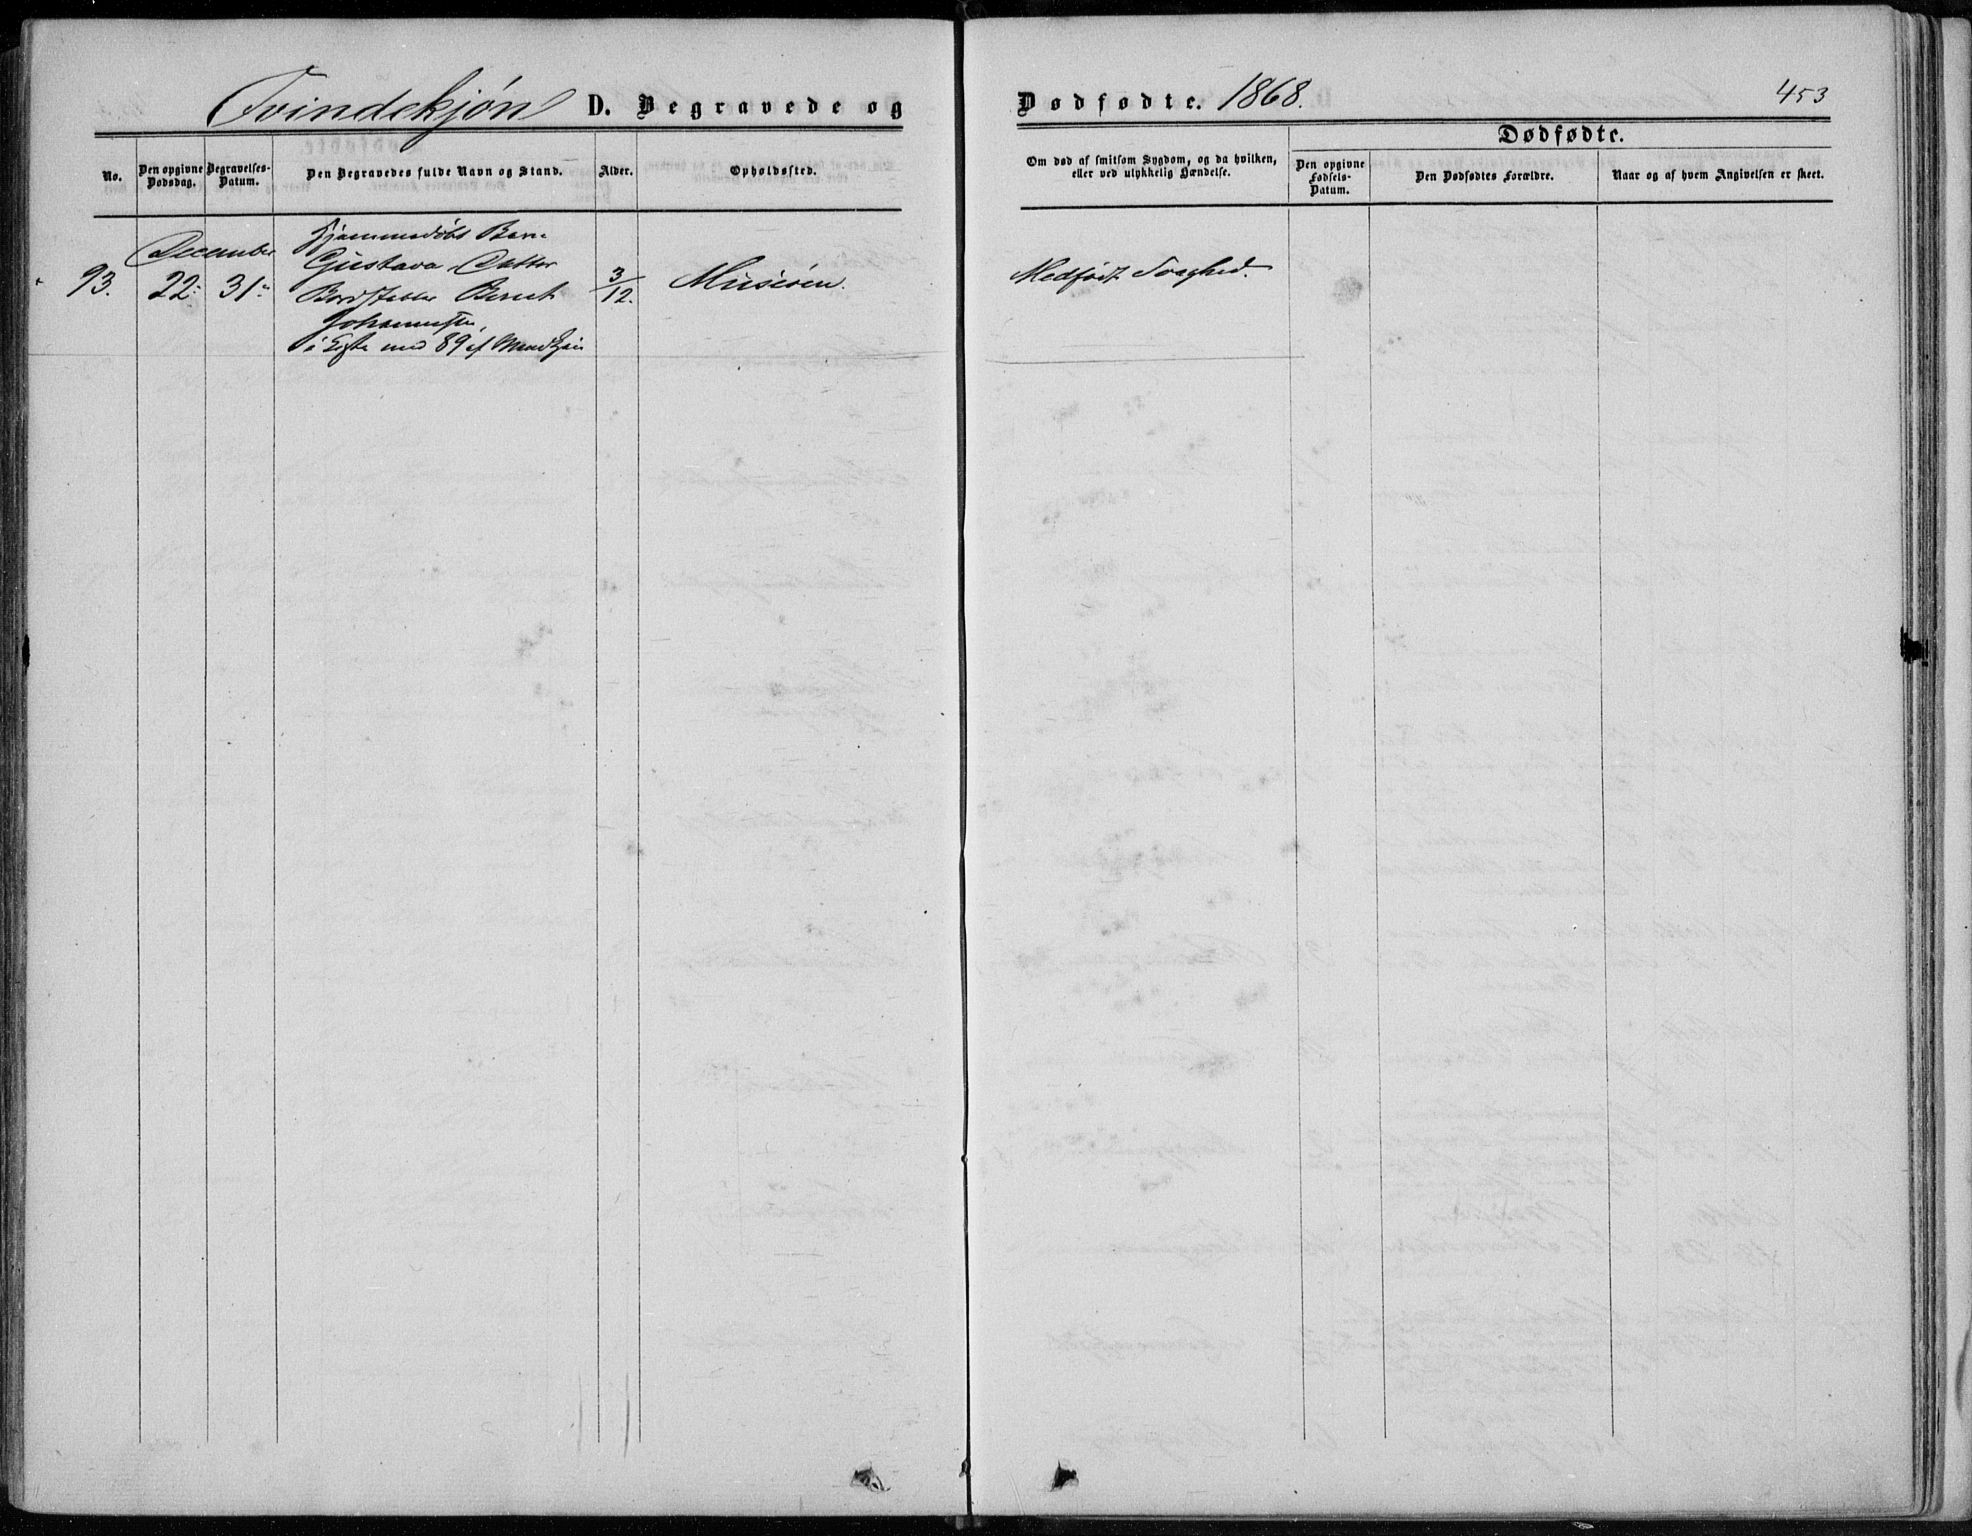 Qvindekjøn D. Begravede og
Dødfødte. 1868.
453
No.
Den opgivne Dødsdag.
Begravelses-Datum.
Den Begravedes fulde Navn og Stand.
Alder.
Opholdssted.
Om død af smitsom Sygdom, og da hvilken,
eller ved ulykkelig Hændelse.
Dødfødte.
Den opgivne Fødsels-Datum.
Den Dødfødtes Forældre.
Naar og af hvem Angivelsen er skeet.
December
93. 22: 31:
Hjemmedøbt Barn
Gustava, Datter
Berent
Johannesen,
i Egte med 89 af Mandkjøn
3/12.
Medfødt Svaghed.